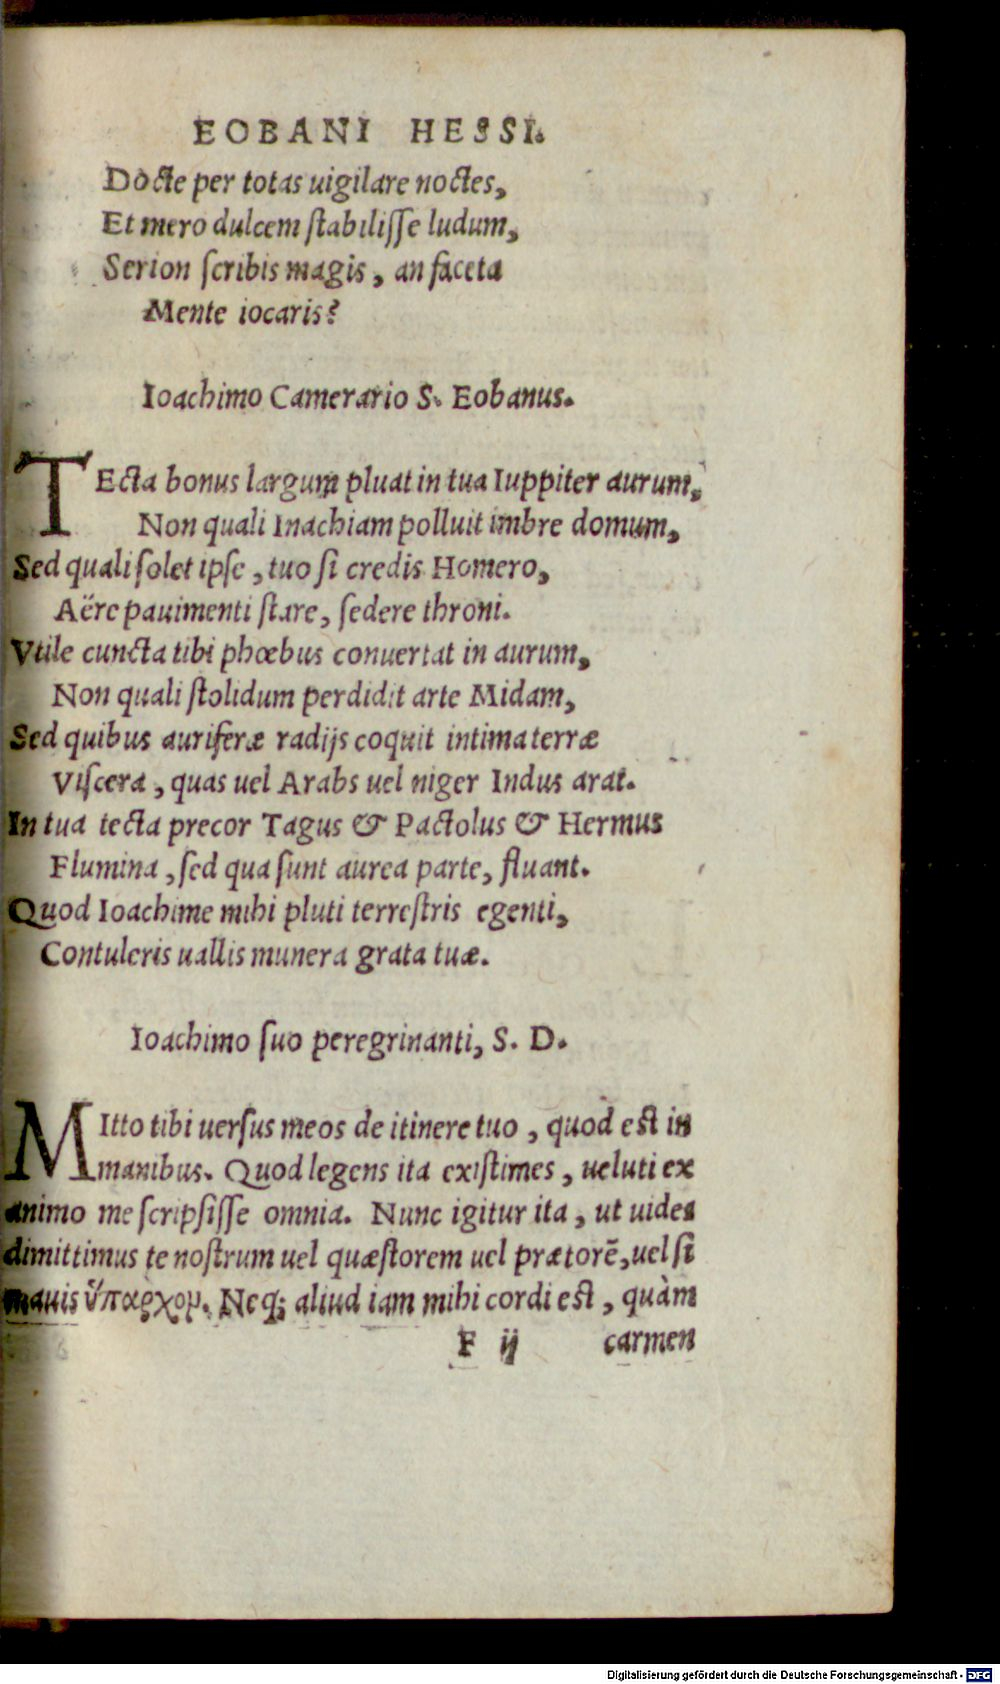 EOBANI HESSI.
Docte per totas uigilare noctes,
Et mero dulcem ſtabiliſſe ludum,
Serion ſcribis magis, an faceta
Mente iocaris?
Ioachimo Camerario S. Eobanus.
TEcta bonus largum pluat in tua Iuppiter aurum,
Non quali Inachiam polluit imbre domum,
Sed quali ſolet ipſe, tuo ſi credis Homero,
Aëre pauimenti ſtare, ſedere throni.
Vtile cuncta tibi phœbus conuertat in aurum,
Non quali ſtolidum perdidit arte Midam,
Sed quibus auriferæ radijs coquit intima terræ
Viſcera, quas uel Arabs uel niger Indus arat.
In tua tecta precor Tagus & Pactolus & Hermus
Flumina, ſed qua ſunt aurea parte, fluant.
Quod Ioachime mihi pluti terreſtris egenti,
Contuleris uallis munera grata tuæ.
Ioachimo ſuo peregrinanti, S. D.
MItto tibi uerſus meos de itinere tuo, quod eſt in
manibus. Quod legens ita exiſtimes, ueluti ex
animo me ſcripſiſſe omnia. Nunc igitur ita, ut uides
dimittimus te noſtrum uel quæſtorem uel prætorẽ, uel ſi
mauis ὕπαρχομ. Neq; aliud iam mihi cordi eſt, quàm
F ij carmen
Digitalisierung gefördert durch die Deutsche Forschungsgemeinschaft - DFG